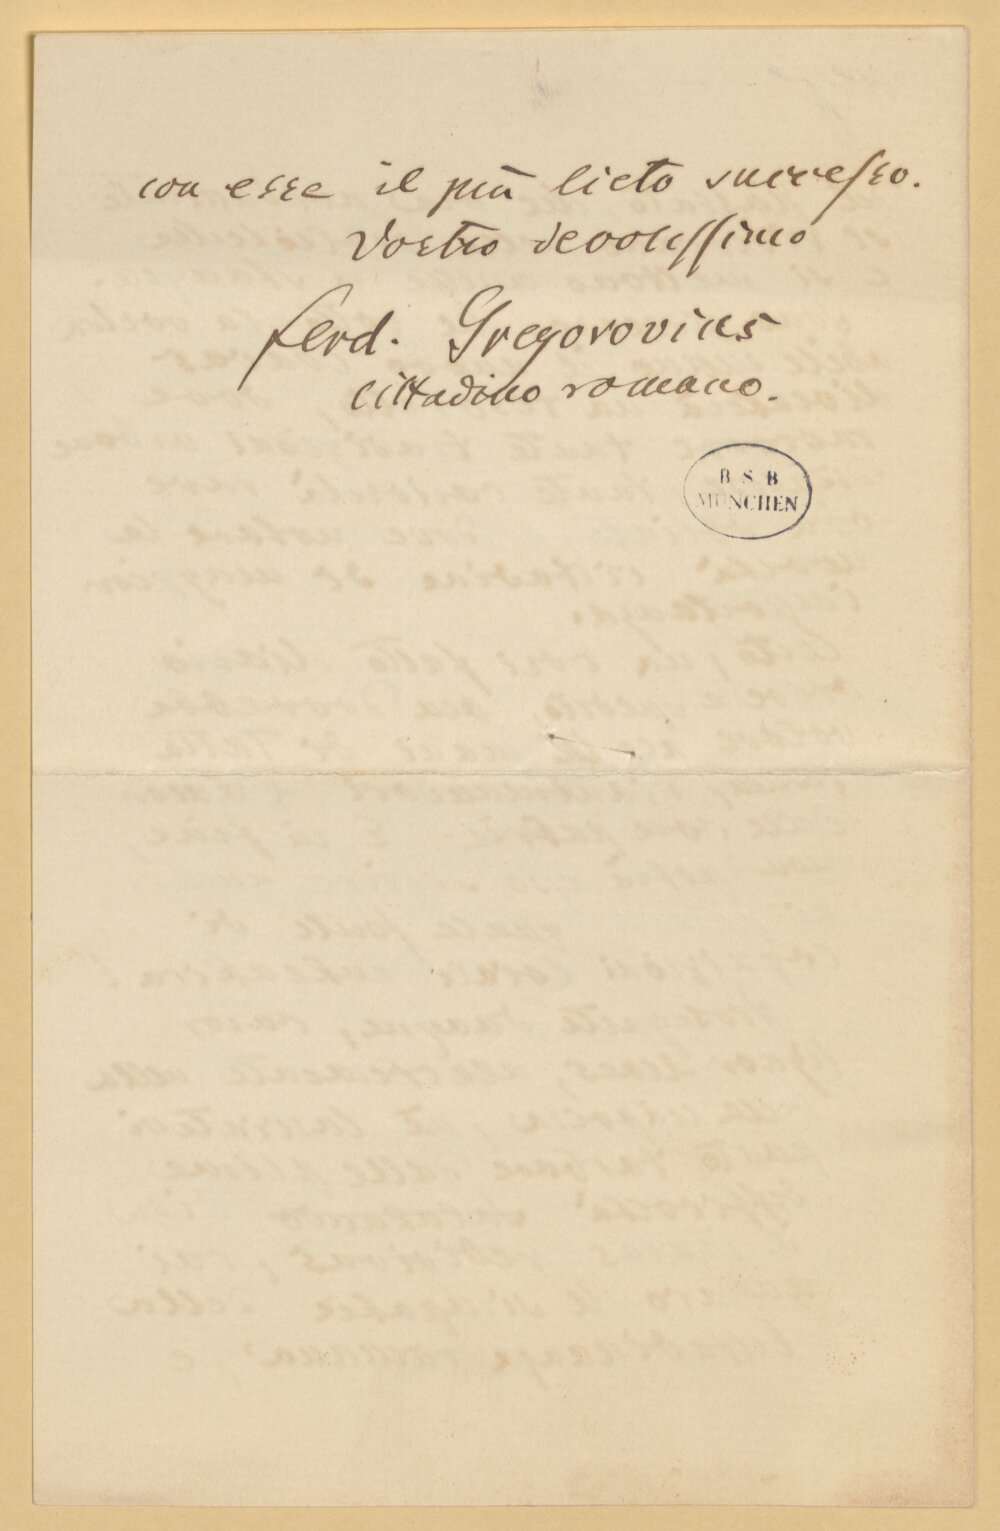 con esse il più lieto successo.
Vostro devotissimo
Ferd. Gregorovius
cittadino romano.
B S B
MÜNCHEN